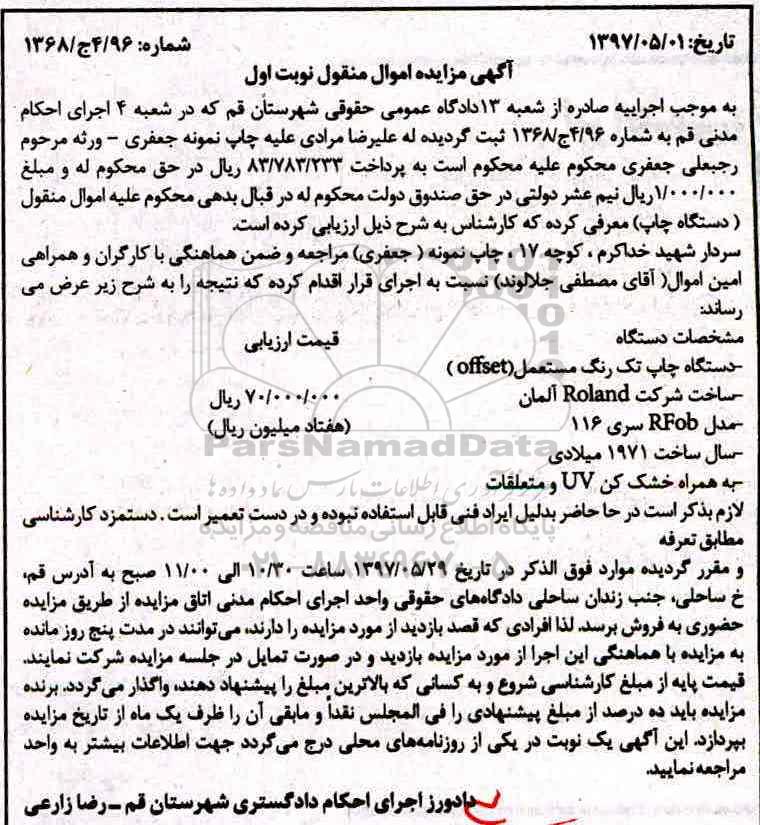 تاریخ: ۱۳۹۷/۰۵/۰۱
شماره: ۴/۹۶ج/۱۳۶۸
آگهی مزایده اموال منقول نوبت اول
به موجب اجراییه صادره از شعبه ۱۳دادگاه عمومی حقوقی شهرستان قم که در شعبه ۴ اجرای احکام
مدنی قم به شماره ۴/۹۶ج/۱۳۶۸ ثبت گردیده له علیرضا مرادی علیه چاپ نمونه جعفری – ورثه مرحوم
رجبعلی جعفری محکوم علیه محکوم است به پرداخت ۸۳/۷۸۳/۲۳۳ ریال در حق محکوم له و مبلغ
۱/۰۰۰/۰۰۰ریال نیم عشر دولتی در حق صندوق دولت محکوم له در قبال بدهی محکوم علیه اموال منقول
( دستگاه چاپ) معرفی کرده که کارشناس به شرح ذیل ارزیابی کرده است.
سردار شهید خداکرم ، کوچه ۱۷ ، چاپ نمونه ( جعفری) مراجعه و ضمن هماهنگی با کارگران و همراهی
امین اموال( آقای مصطفی جلالوند) نسبت به اجرای قرار اقدام کرده که نتیجه را به شرح زیر عرض می
رساند:
مشخصات دستگاه
قیمت ارزیابی
-دستگاه چاپ تک رنگ مستعمل(offset )
-ساخت شرکت Roland آلمان
۷۰/۰۰۰/۰۰۰ ریال
-مدل RFob سری ۱۱۶
(هفتاد میلیون ریال)
-سال ساخت ۱۹۷۱ میلادی
-به همراه خشک کن UV و متعلقات
لازم بذکر است در حا حاضر بدلیل ایراد فنی قابل استفاده نبوده و در دست تعمیر است . دستمزد کارشناسی
مطابق تعرفه
و مقرر گردیده موارد فوق الذکر در تاریخ ۱۳۹۷/۰۵/۲۹ ساعت ۱۰/۳۰ الی ۱۱/۰۰ صبح به آدرس قم،
خ ساحلی، جنب زندان ساحلی دادگاه‌های حقوقی واحد اجرای احکام مدنی اتاق مزایده از طریق مزایده
حضوری به فروش برسد. لذا افرادی که قصد بازدید از مورد مزایده را دارند، می‌توانند در مدت پنج روز مانده
به مزایده با هماهنگی این اجرا از مورد مزایده بازدید و در صورت تمایل در جلسه مزایده شرکت نمایند.
قیمت پایه از مبلغ کارشناسی شروع و به کسانی که بالاترین مبلغ را پیشنهاد دهند، واگذار می‌گردد. برنده
مزایده باید ده درصد از مبلغ پیشنهادی را فی المجلس نقداً و مابقی آن را ظرف یک ماه از تاریخ مزایده
بپردازد. این آگهی یک نوبت در یکی از روزنامه‌های محلی درج می‌گردد جهت اطلاعات بیشتر به واحد
مراجعه نمایید.
دادورز اجرای احکام دادگستری شهرستان قم – رضا زارعی
ParsNamadData
پایگاه اطلاع رسانی مناقصه و مزایده
۰۲۱-۸۸۳۴۹۶۷۰-۵